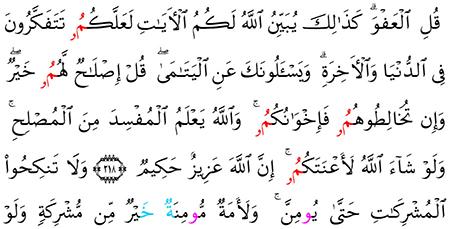 قُلِ الْعَفْوَ ۗ كَذَٰلِكَ يُبَيِّنُ اللَّهُ لَكُمُ الْأَيَٰتِ لَعَلَّكُمُۥ تَتَفَكَّرُونَ
فِى الدُّنْيَا وَالْأَخِرَةِ ۗ وَيَسْـَٔلُونَكَ عَنِ الْيَتَٰمَىٰ ۖ قُلْ إِصْلَاحٌ لَّهُمُۥ خَيْرٌ ۖ
وَإِن تُخَالِطُوهُمُۥ فَإِخْوَٰنُكُمُۥ ۚ وَاللَّهُ يَعْلَمُ الْمُفْسِدَ مِنَ الْمُصْلِحِ ۚ
وَلَوْ شَآءَ اللَّهُ لَأَعْنَتَكُمُۥ ۚ إِنَّ اللَّهَ عَزِيزٌ حَكِيمٌ ﴿٢١٨﴾ وَلَا تَنكِحُوا۟
الْمُشْرِكَٰتِ حَتَّىٰ يُومِنَّ ۚ وَلَأَمَةٌ مُّومِنَةٌ خَيْرٌ مِّن مُّشْرِكَةٍ وَلَوْ